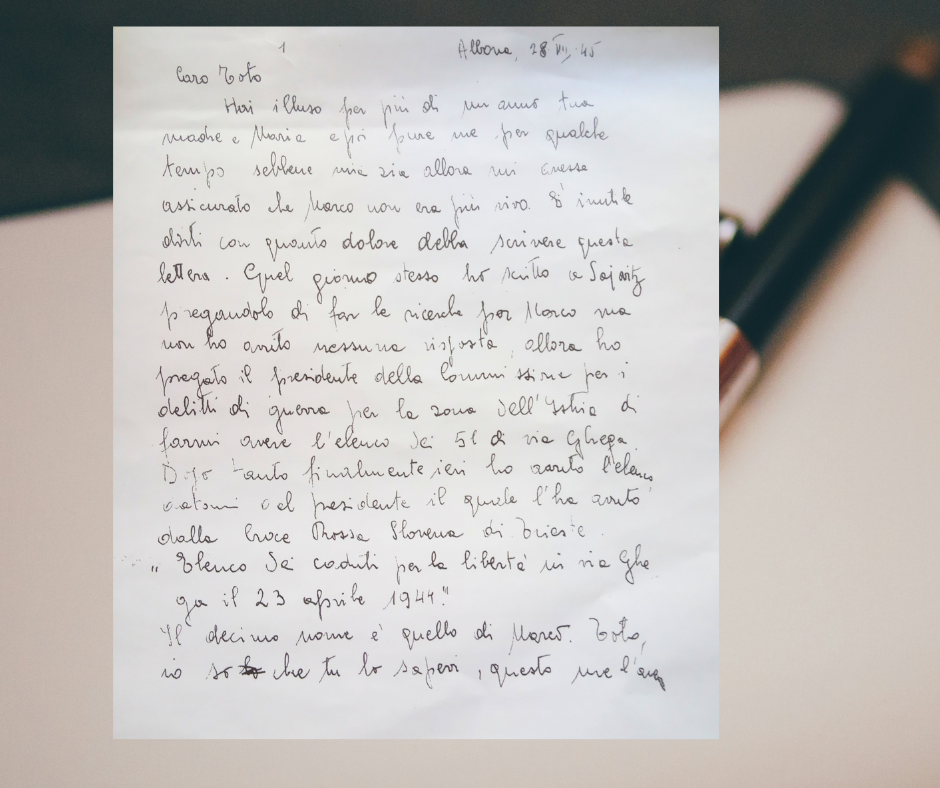 1
Albona, 28 VII 45
Caro Toto
Hai illuso per più di un anno tua
madre e Maria e poi pure me per qualche
tempo sebbene mia zia allora mi avesse
assicurato che Marco non era più vivo È inutile
dirti con quanto dolore debba scrivere questa
lettera. Quel giorno stesso ho scritto a
pregandolo di far le ricerche per Marco ma
non ho avuto nessuna risposta, allora ho
pregato il presidente della Commissione per i
delitti di guerra per la zona dell'Istria di
farmi avere l'elenco dei 51 di via Ghega.
Dopo tanto finalmente ieri ho avuto l'elenco
datomi dal presidente il quale l'ha avuto
dalla Croce Rossa Slovena di Trieste.
„ Elenco dei caduti per la libertà in via Ghe
ga il 23 aprile 1944."
Il decimo nome è quello di Marco. Toto,
io so che tu lo sapevi, questo me l'